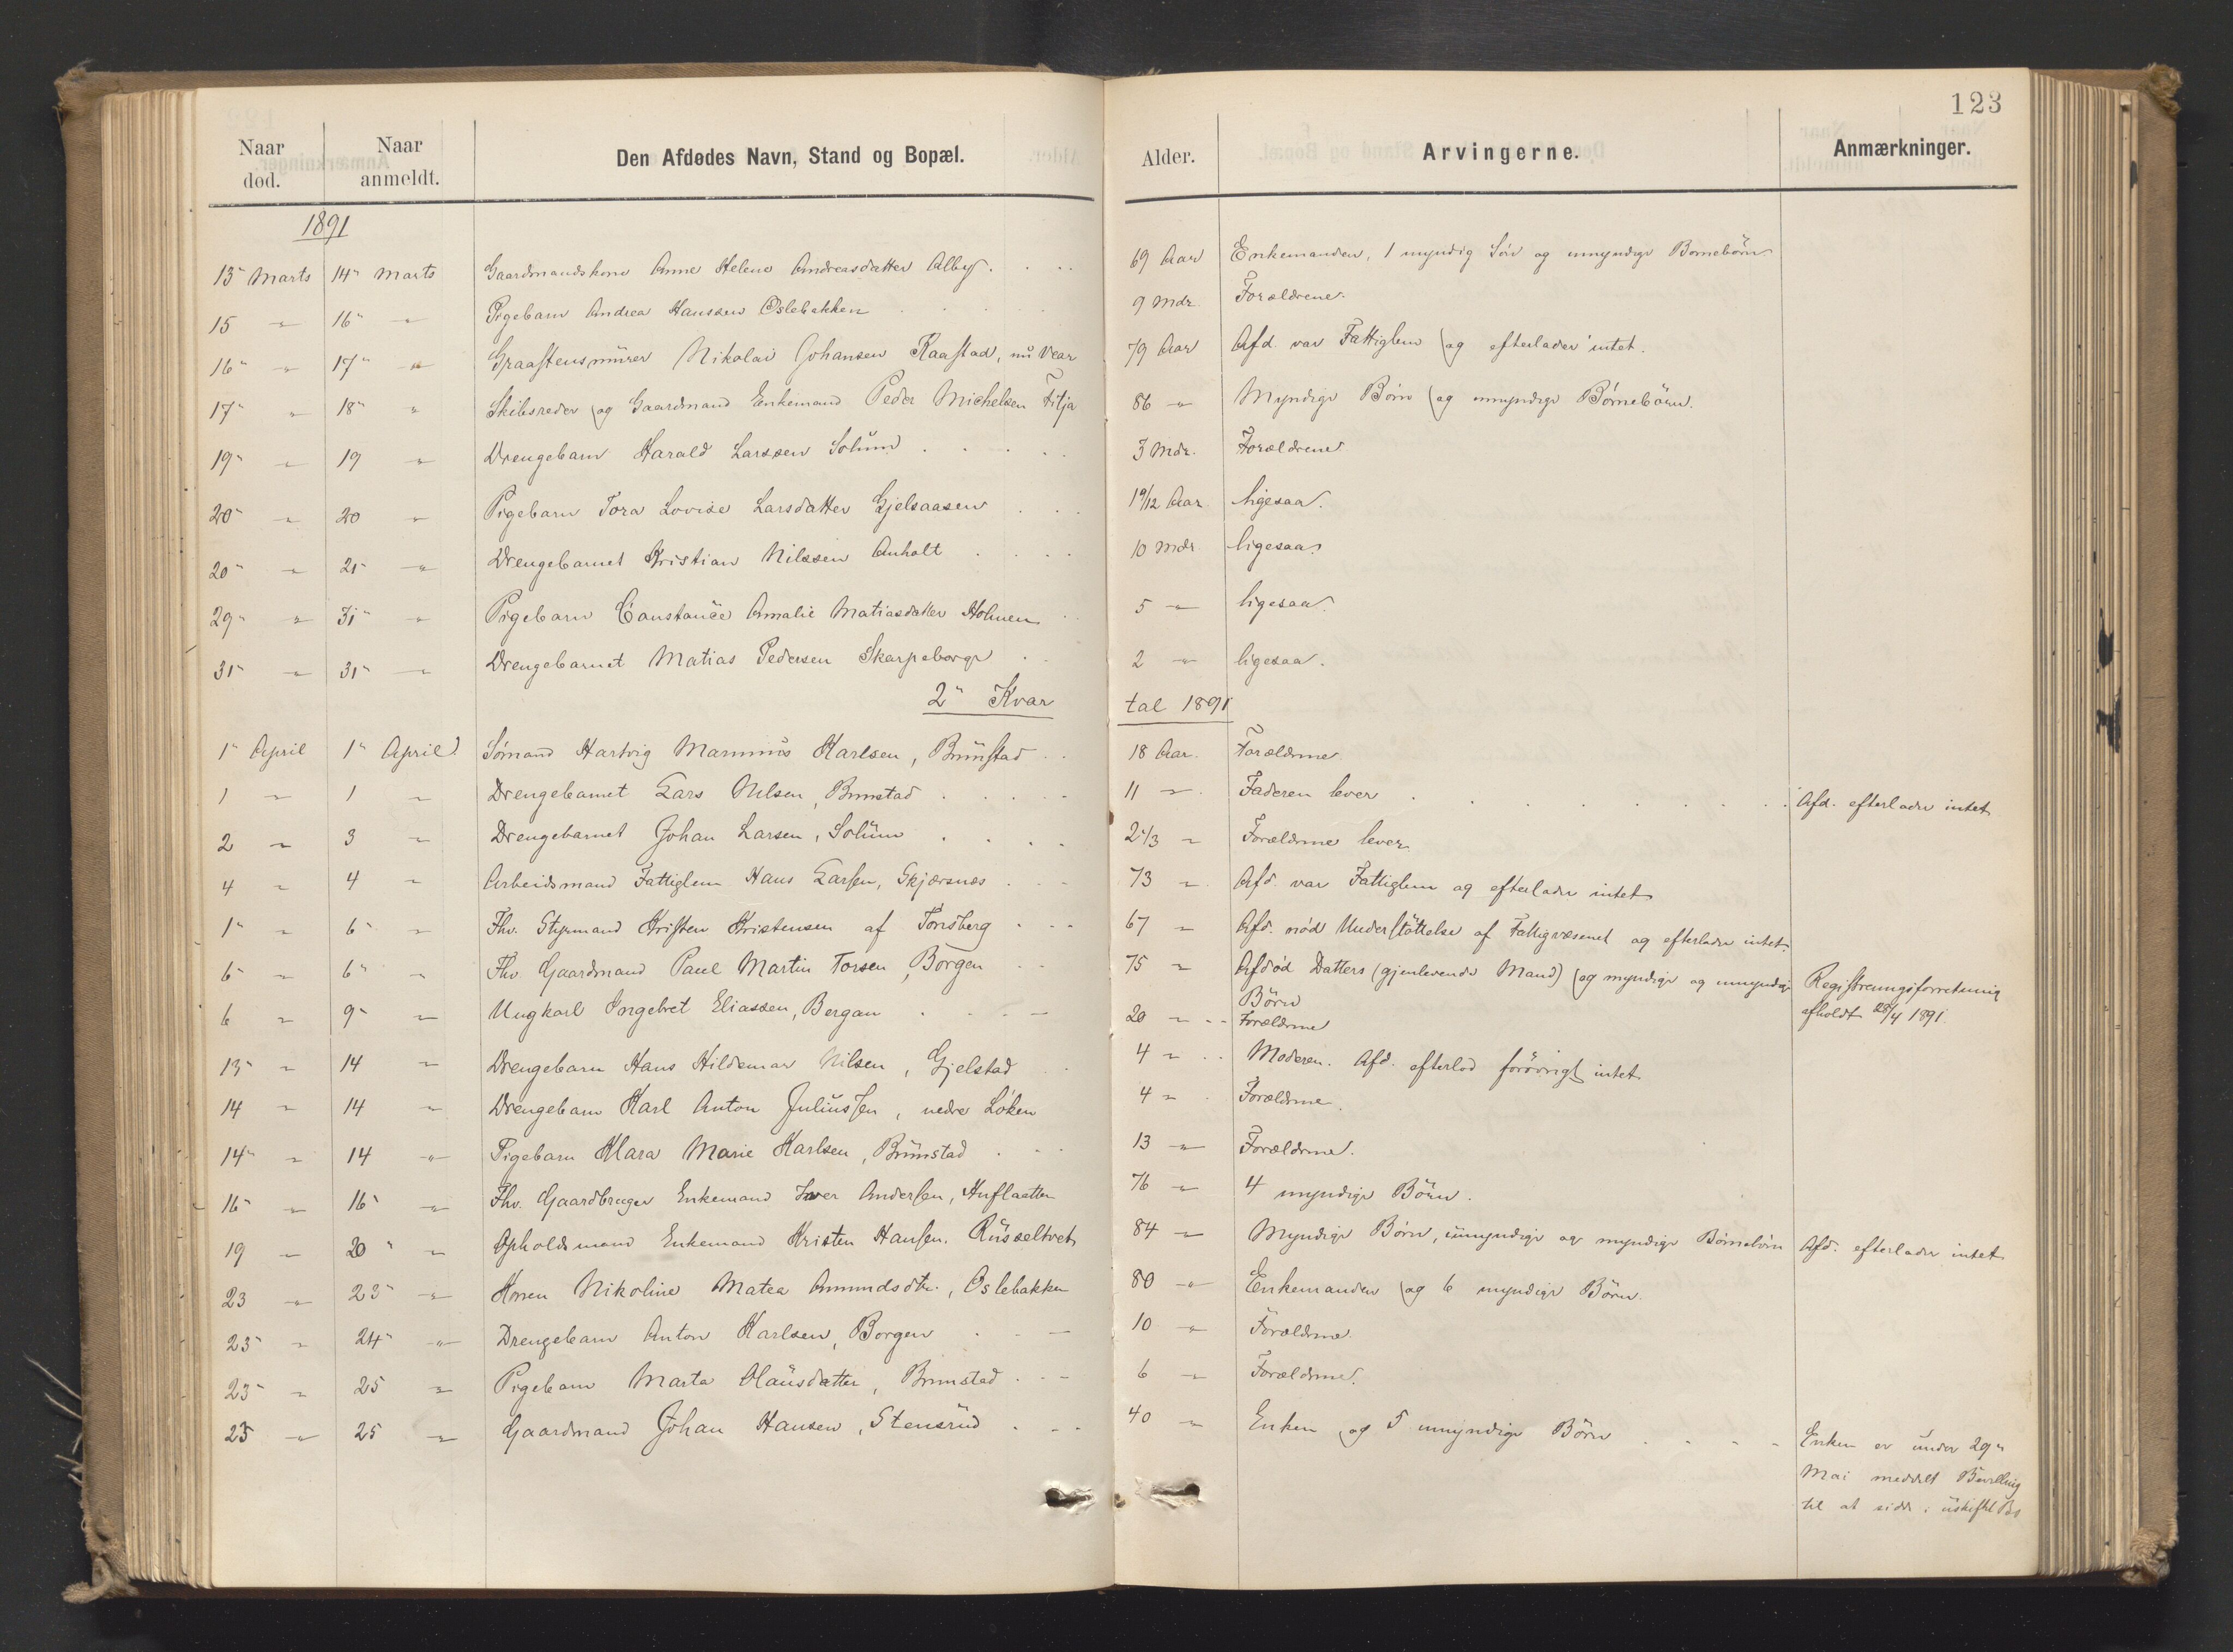 123
Naar død. Naar anmeldt. Den Afdødes Navn, Stand og Bopæl. Alder. Arvingerne. Anmærkninger.
1891
13" Marts 14" Marts Gaardmandskone Anne Helene Andreasdatter Alby. 69 Aar Enkemanden, 1 myndig Søn og umyndige Børnebörn
15 " 16" " Pigebarn Andrea Hanssen Oslebakken 9 Mdr. Forældrene.
16" " 17" " Graastensmürer Nikolai Johansen Raastad, nü Vear 79 Aar Afd. var Fattiglem og efterlader intet.
17" " 18" " Skibsreder og Gaardmand Enkemand Peder Michelsen Filja 86 " Myndige Börn og umyndige Børnebörn.
19" " 19 " Drengebarn Harald Larssen Solüm 3 Mdr. Forældrene
20" " 20 " Pigebarn Tora Lovise Larsdatter Gjelsaasen 1 9/12 Aar ligesaa.
20" " 21" " Drengebarnet Kristian Nilssen Anholt 10 Mdr ligesaa
29" " 31" " Pigebarn Constance Amalie Matiasdatter Holmen 5 " ligesaa.
31" " 31" " Drengebarnet Matias Pedersen Skarpeborge 2 " ligesaa.
2" Kvartal 1891
1" April 1" April Sömand Hartvig Marinius Karlsen, Brünstad 18 Aar. Forældrene
1 " 1 " Drengebarnet Lars Nilsen, Brunstad 11 " Faderen lever Afd. efterlader intet
2 " 3 " Drengebarnet Johan Larsen, Solüm 2 1/3 " Forældrene lever
4 " 4 " Arbeidsmand Fattiglem Hans Larsen, Skjærsnæs 73 " Afd. var Fattiglem og efterlader intet
1" " 6" " Fhv. Styrmand Kristen Kristensen af Tönsberg 67 " Afd. nød Understöttelse af Fattigvæsenet og efterlader intet.
6" " 6" " Fhv. Gaardmand Paul Martin Torsen, Borgen 75 " Afdød Datters (gjenlevende Mand) og myndige og umyndige Registreringsforretning
Börn afholdt 28/4 1891.
6 " 9" " Ungkarl Ingebret Eliassen, Bergan 20 " Forældrene
13" " 14 " Drengebarn Hans Hildemar Nilsen, Gjelstad 4 " Moderen. Afd. efterlod forövrigt intet
14 " 14 " Drengebarn Karl Anton Juliüssen, nedre Löken 4 " Forældrene.
14" " 14 " Pigebarn Klara Marie Karlsen, Brünstad 13 " Forældrene.
16" " 16" " Fhv. Gaardbruger Enkemand Iver Andersen, Huflaatten 76 " 4 myndige Börn.
19 " 20" " Opholdsmand Enkemand Kristen Hansen, Rüsseltvet 84 " Myndige Børn, ümyndige og myndige Børnebörn Afd. efterlader intet
23 " 23" " Konen Nikoline Matea Amundsdtr., Oslebakken 80 " Enkemanden og 6 myndige Börn.
23" " 24" " Drengebarn Anton Karlsen, Borgen 10 " Forældrene.
23" " 25 " Pigebarn Marta Olaüsdatter, Brunstad 6 " Forældrene.
25 " 25 " Gaardmand Johan Hansen, Stensrüd 40 " Enken og 5 umyndige Börn Enken er ünder 29"
Mai meddelt Bevilling
til at sidde i üskiftet Bo